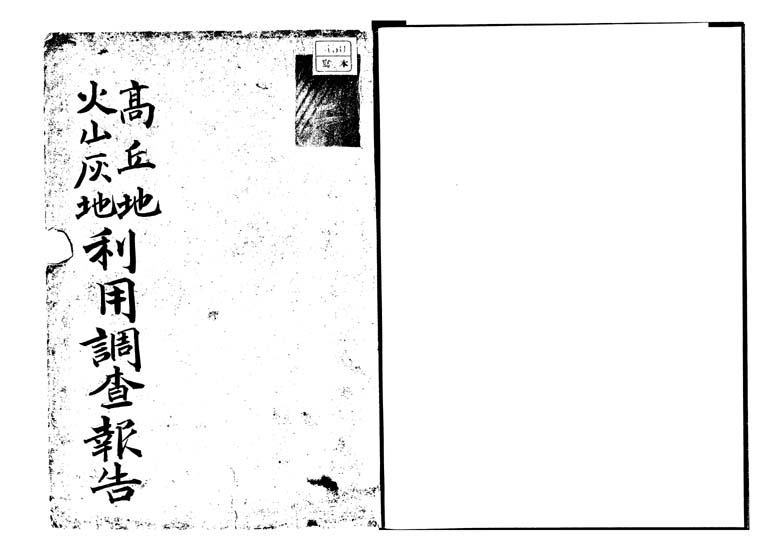 高丘地
火山灰地
利用調査報告
寫本